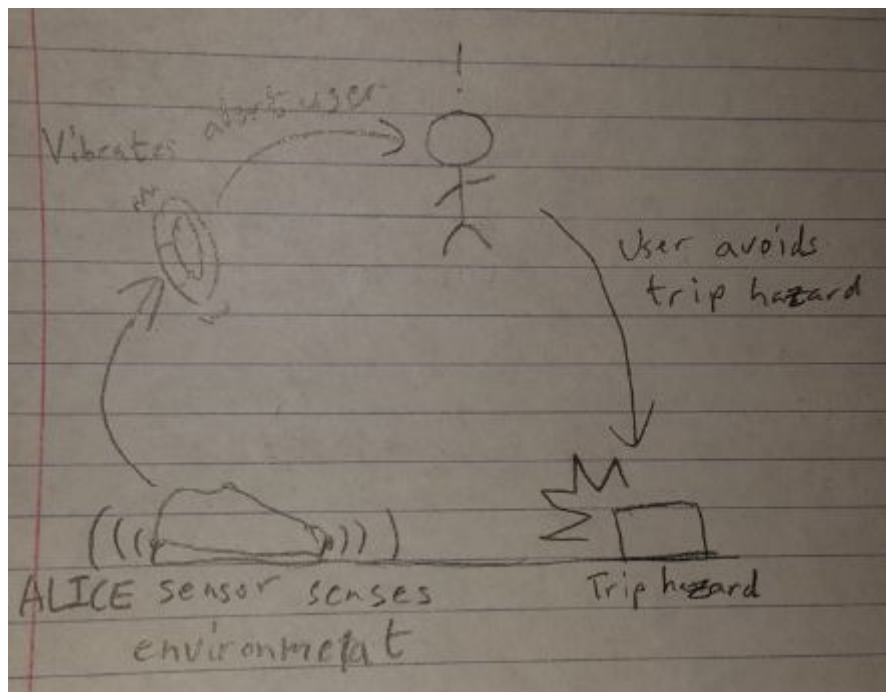 !
alerts user
Vibrates
User avoids
trip hazard
ALICE sensor senses
environment
Trip hazard